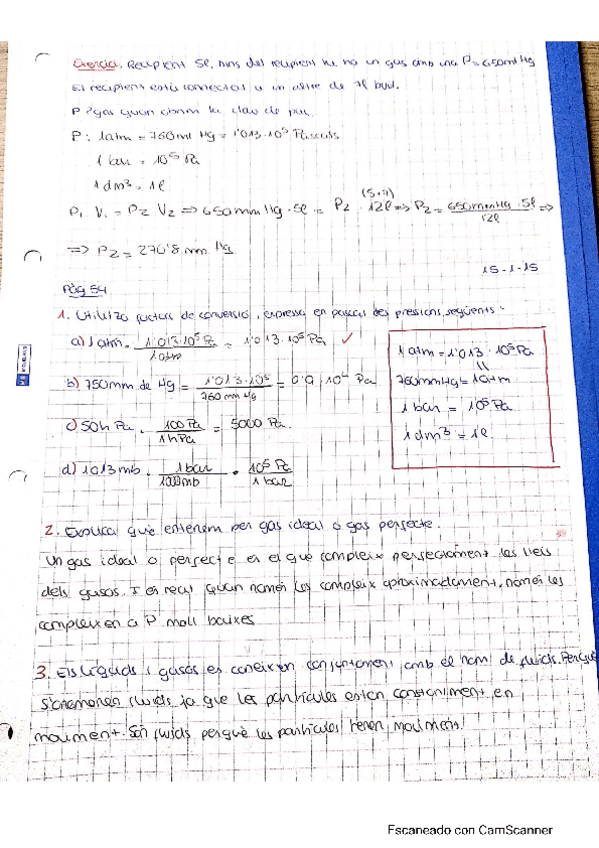 Exercici. Recipient 5l, dins del recipient hi ha un gas amb una P=650ml Hg
El recipient està connectat a un altre de 7l buit.
P? gas quan obrim la clau de pas.
P: 1atm = 760ml Hg = 1'013·10⁵ Pascals
1 bar = 10⁵ Pa
1 dm³ = 1l
P₁ V₁ = P₂ V₂ => 650mmHg · 5l = P₂ · 12l => P₂ = 650mmHg · 5l / 12l =>
(5+7)
=> P₂ = 270'8 mm Hg
15-1-15
Pàg 54
1. Utilitza factors de conversió, expressa en pascal les pressions següents.
a) 1atm · 1'013·10⁵ Pa / 1atm = 1'013·10⁵ Pa ✓
b) 750mm de Hg = 1'013·10⁵ / 760 mm Hg = Pa
c) 50h Pa · 100 Pa / 1hPa = 5000 Pa.
d) 1013mb · 1bar / 1000mb · 10⁵ Pa / 1 bar
1 atm = 1'013·10⁵ Pa
760mmHg = 1atm
1 bar = 10⁵ Pa
1 dm³ = 1l.
2. Explica què entenem per gas ideal o gas perfecte.
Un gas ideal o perfecte es el que compleix perfectament les lleis
dels gasos. I es real quan només les compleix aproximadament, només les
compleixen a P molt baixes
3. Els líquids i gasos es coneixen conjuntament amb el nom de fluids. Perquè
s'anomenen fluids ja que les partícules estan constantment en
moviment. Són fluids perquè les partícules tenen moviment.
Escaneado con CamScanner